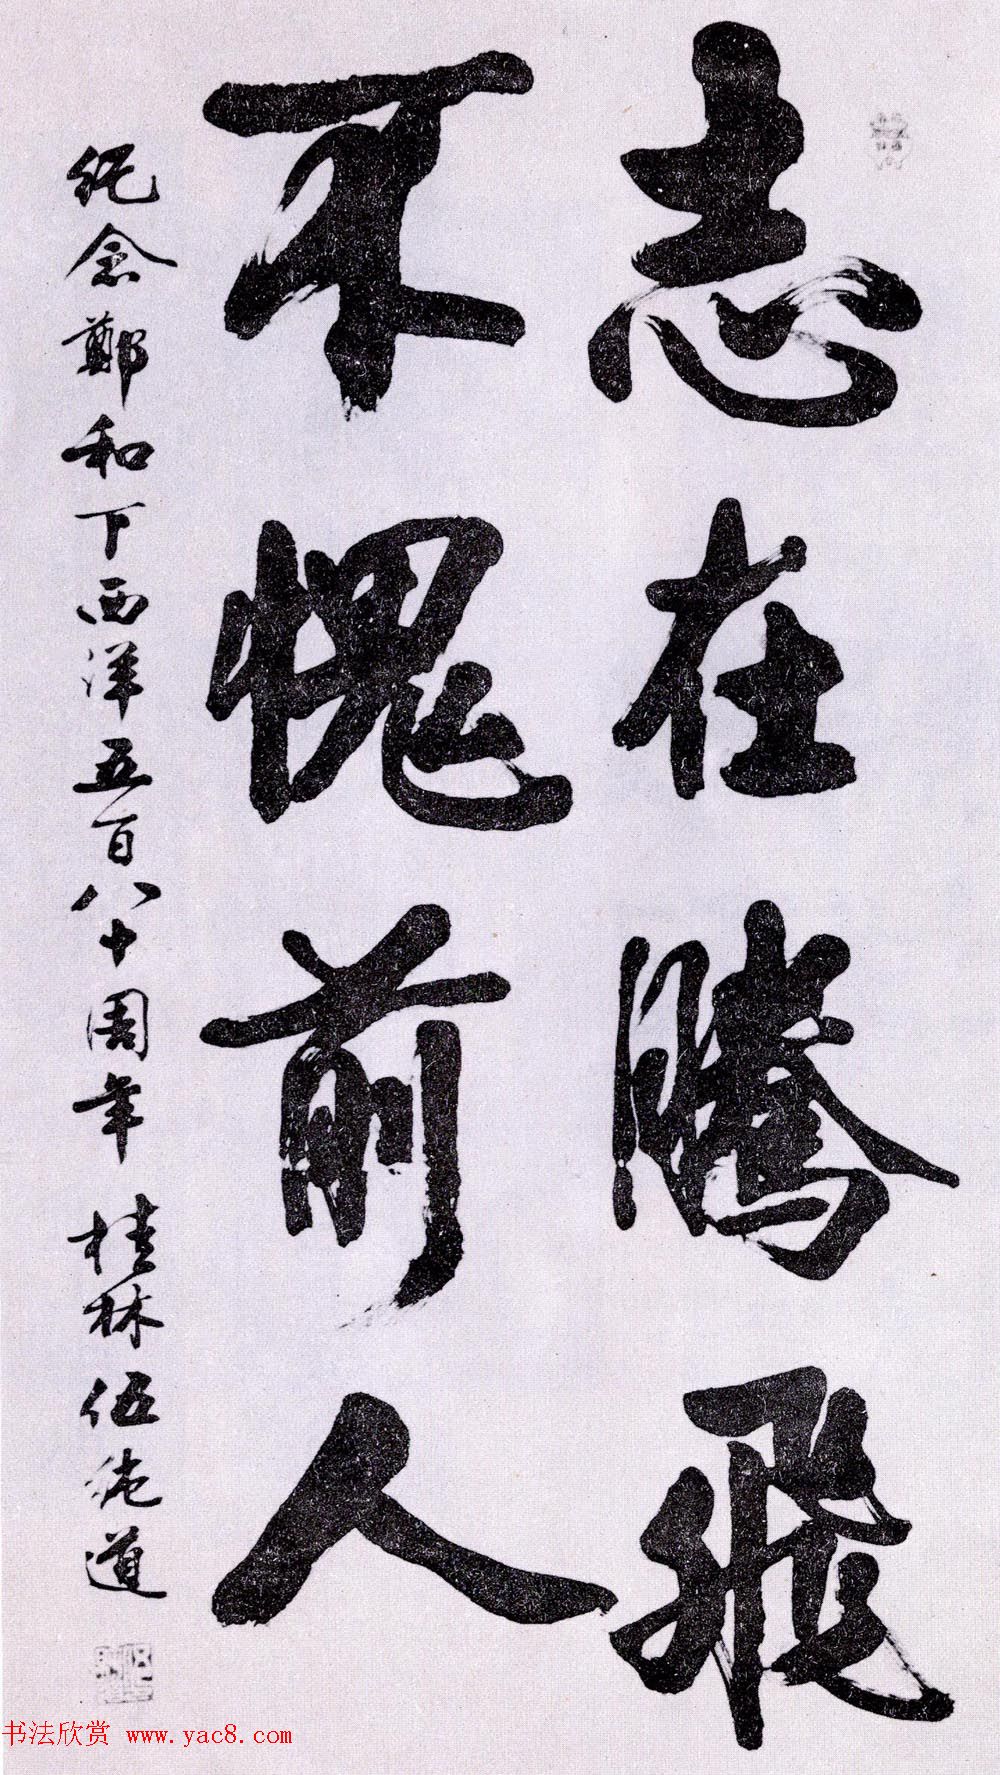 志在騰飛
不愧前人
紀念鄭和下西洋五百八十周年 桂林伍純道
书法欣赏 www.yac8.com